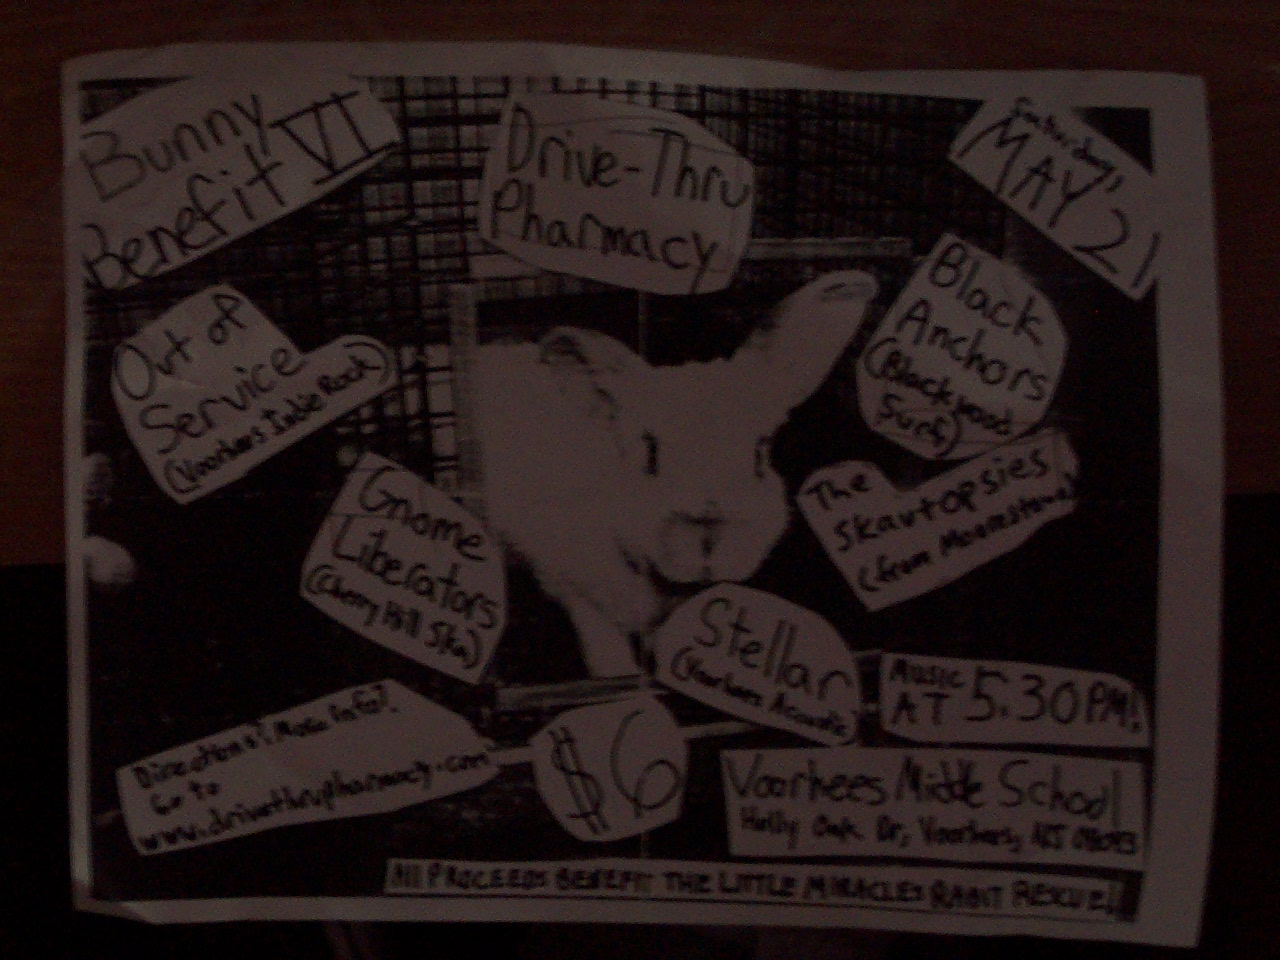 Bunny
Benefit VI
Drive-Thru
Pharmacy
Saturday,
MAY 21
Out of
Service
(Voorhees Indie Rock)
Black
Anchors
(Blackwood
Surf)
Gnome
Liberators
(Cherry Hill Ska)
The
Skavtopsies
(from Moorestown)
Stellar
(Voorhees Acoustic)
MUSIC
AT 5:30 PM!
Directions? More info?
Go to
www.drivethrupharmacy.com
$6
Voorhees Middle School
Holly Oak Dr, Voorhees, NJ 08043
All PROCEEDS BENEFIT THE LITTLE MIRACLES RABBIT RESCUE!